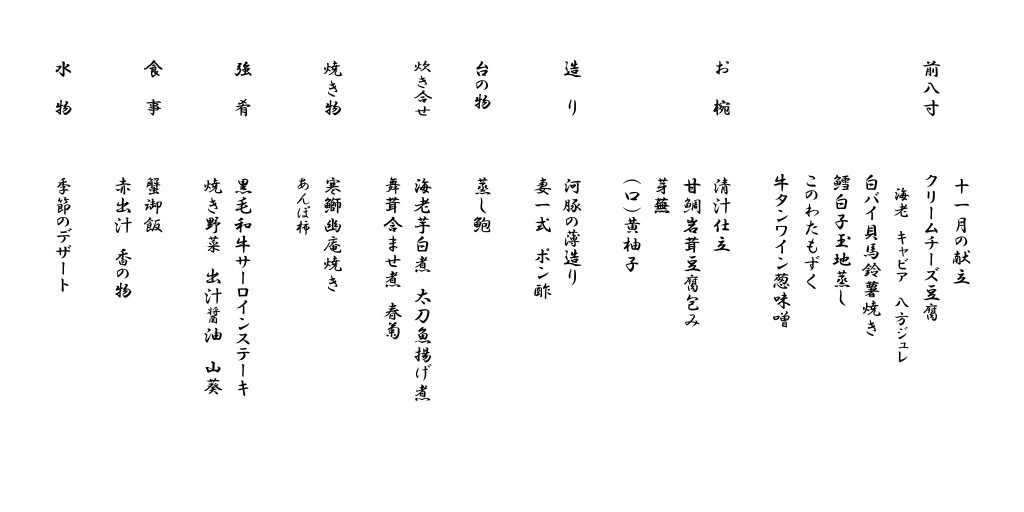 十一月の献立
前八寸 クリームチーズ豆腐
海老 キャビア 八方ジュレ
白バイ貝馬鈴薯焼き
鱈白子玉地蒸し
このわたもずく
牛タンワイン葱味噌
お椀 清汁仕立
甘鯛岩茸豆腐包み
芽蕪
(口)黄柚子
造り 河豚の薄造り
妻一式 ポン酢
台の物 蒸し鮑
炊き合せ 海老芋白煮 太刀魚揚げ煮
舞茸含ませ煮 春菊
焼き物 寒鰤幽庵焼き
あんぽ柿
強肴 黒毛和牛サーロインステーキ
焼き野菜 出汁醤油 山葵
食事 蟹御飯
赤出汁 香の物
水物 季節のデザート